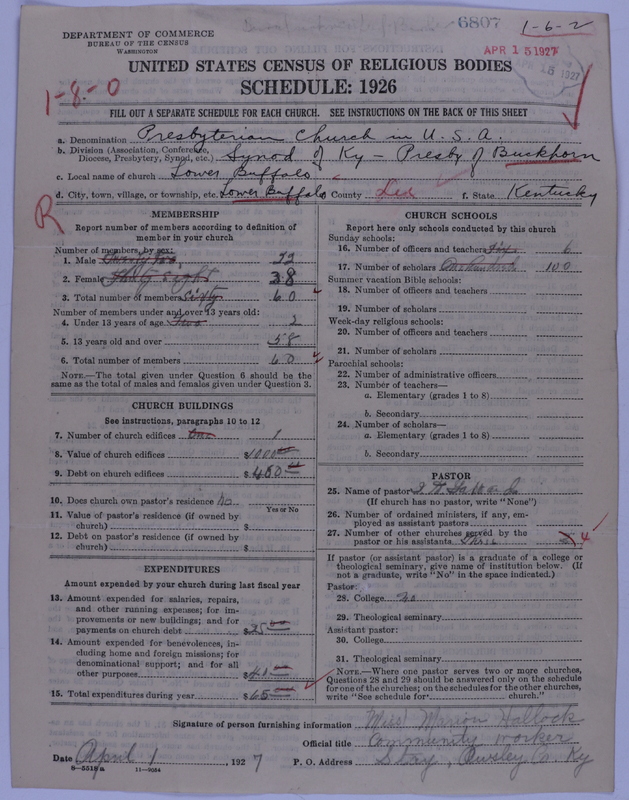 6807
1-6-2
DEPARTMENT OF COMMERCE
BUREAU OF THE CENSUS
WASHINGTON
APR 15 1927
15 1927
UNITED STATES CENSUS OF RELIGIOUS BODIES
SCHEDULE: 1926
1-8-0
FILL OUT A SEPARATE SCHEDULE FOR EACH CHURCH. SEE INSTRUCTIONS ON THE BACK OF THIS SHEET
a. Denomination Presbyterian Church in U.S.A.
b. Division (Association, Conference, Diocese, Presbytery, Synod, etc.) Synod of Ky - Presby of Buckhorn
c. Local name of church Lower Buffalo
d. City, town, village, or township, etc. Lower Buffalo County Lee f. State Kentucky
R
MEMBERSHIP
Report number of members according to definition of
member in your church
Number of members, by sex:
1. Male Twenty two 22
2. Female Thirty eight 38
3. Total number of members Sixty 60
Number of members under and over 13 years old:
4. Under 13 years of age Two 2
5. 13 years old and over 58
6. Total number of members 60
NOTE.—The total given under Question 6 should be the
same as the total of males and females given under Question 3.
CHURCH BUILDINGS
See instructions, paragraphs 10 to 12
7. Number of church edifices One 1
8. Value of church edifices $1000
9. Debt on church edifices $400
10. Does church own pastor's residence No
Yes or No
11. Value of pastor's residence (if owned by
church) $
12. Debt on pastor's residence (if owned by
church) $
EXPENDITURES
Amount expended by your church during last fiscal year
13. Amount expended for salaries, repairs,
and other running expenses; for im-
provements or new buildings; and for
payments on church debt $25
14. Amount expended for benevolences, in-
cluding home and foreign missions; for
denominational support; and for all
other purposes $40
15. Total expenditures during year $65
CHURCH SCHOOLS
Report here only schools conducted by this church
Sunday schools:
16. Number of officers and teachers Six 6
17. Number of scholars One hundred 100
Summer vacation Bible schools:
18. Number of officers and teachers
19. Number of scholars
Week-day religious schools:
20. Number of officers and teachers
21. Number of scholars
Parochial schools:
22. Number of administrative officers
23. Number of teachers—
a. Elementary (grades 1 to 8)
b. Secondary
24. Number of scholars—
a. Elementary (grades 1 to 8)
b. Secondary
PASTOR
25. Name of pastor
(If church has no pastor, write "None")
26. Number of ordained ministers, if any, em-
ployed as assistant pastors
27. Number of other churches served by the
pastor or his assistants 4
If pastor (or assistant pastor) is a graduate of a college or
theological seminary, give name of institution below. (If
not a graduate, write "No" in the space indicated.)
Pastor:
28. College No
29. Theological seminary
Assistant pastor:
30. College
31. Theological seminary
NOTE.—Where one pastor serves two or more churches,
Questions 28 and 29 should be answered only on the schedule
for one of the churches; on the schedules for the other churches,
write "See schedule for church."
Signature of person furnishing information Miss Marion Hallock
Official title Community Worker
Date April 1, 1927 P. O. Address Owsley Co. Ky
8—5518a 11—9054